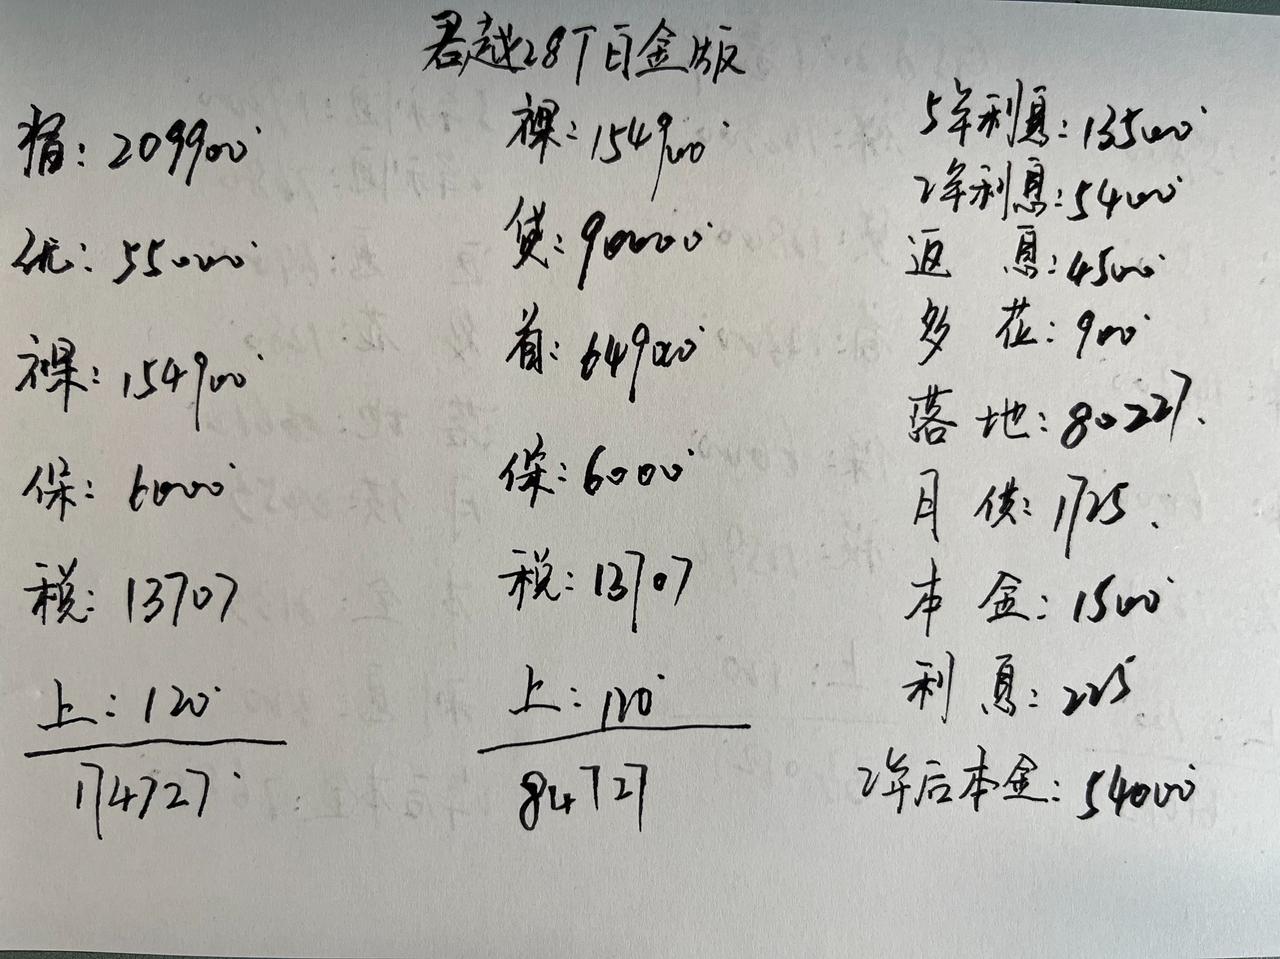 君越28T白金版
指：209900
优：55000
裸：154900
保：6000
税：13707
上：120
174727
裸：154900
贷：90000
首：64900
保：6000
税：13707
上：120
84727
5年利息：13500
2年利息：5400
返息：4500
多花：900
落地：80227.
月供：1725.
本金：1500
利息：225
2年后本金：54000